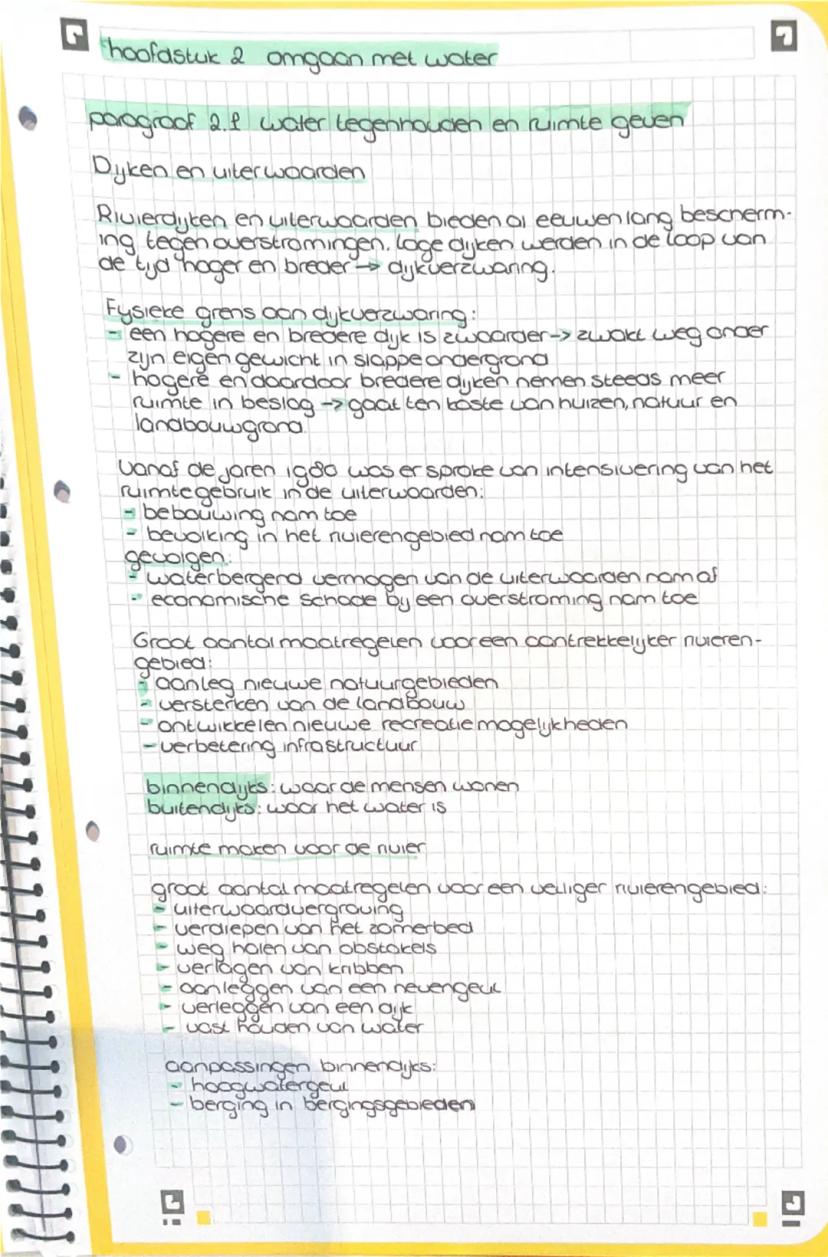 hoofdstuk 2 omgaan met water
paragraaf 2.1 water tegenhouden en ruimte geven
Dijken en uiterwaarden
Rivierdijken en uiterwaarden bieden al eeuwenlang bescherm-
ing tegen overstromingen. Lage dijken werden in de loop van
de tijd hoger en breder → dijkverzwaring.
Fysieke grens aan dijkverzwaring:
- een hogere en bredere dijk is zwaarder → zwakt weg onder
zijn eigen gewicht in slappe ondergrond
- hogere en daardoor bredere dijken nemen steeds meer
ruimte in beslag → gaat ten koste van huizen, natuur en
landbouwgrond
Vanaf de jaren 1980 was er sprake van intensivering van het
ruimtegebruik in de uiterwaarden:
- bebouwing nam toe
- bevolking in het rivierengebied nam toe
gevolgen:
- waterbergend vermogen van de uiterwaarden nam af
- economische schade bij een overstroming nam toe
Groot aantal maatregelen voor een aantrekkelijker rivieren-
gebied:
- aanleg nieuwe natuurgebieden
- versterken van de landbouw
- ontwikkelen nieuwe recreatiemogelijkheden
- verbetering infrastructuur
binnendijks: waar de mensen wonen
buitendijks: waar het water is
ruimte maken voor de rivier
groot aantal maatregelen voor een veiliger rivierengebied:
- uiterwaardvergraving
- verdiepen van het zomerbed
- weg halen van obstakels
- verlagen van kribben
- aanleggen van een nevengeul
- verleggen van een dijk
- vast houden van water
aanpassingen binnendijks:
- hoogwatergeul
- berging in bergingsgebieden